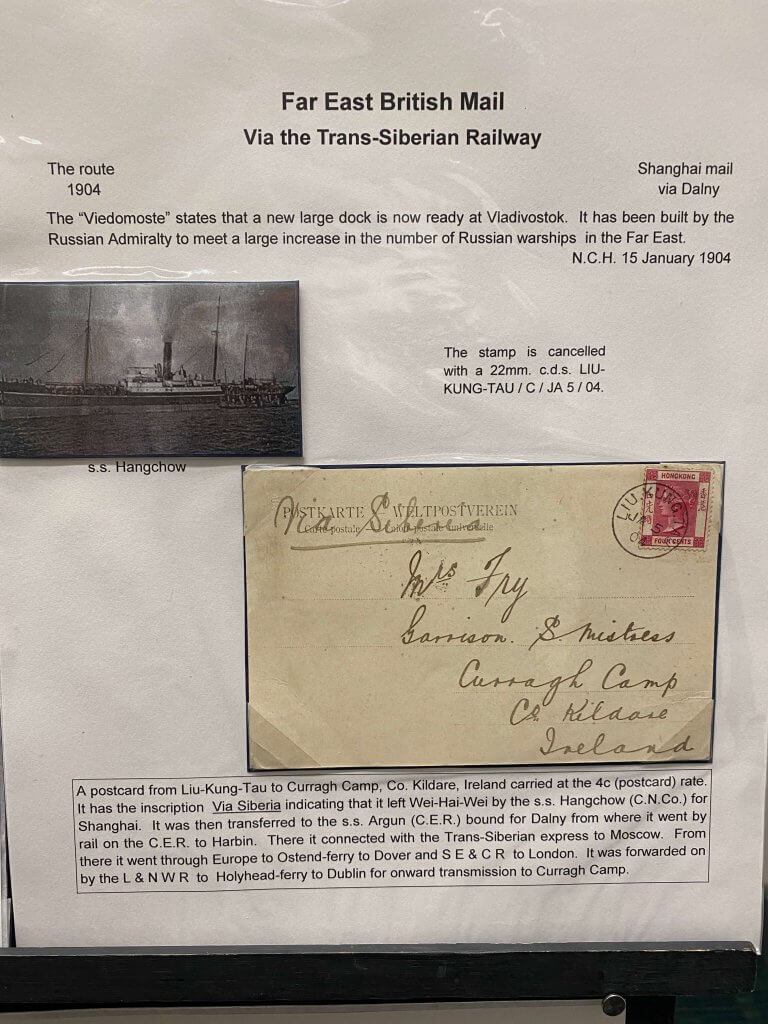 Far East British Mail
Via the Trans-Siberian Railway
The route
1904
Shanghai mail
via Dalny
The “Viedomoste” states that a new large dock is now ready at Vladivostok. It has been built by the
Russian Admiralty to meet a large increase in the number of Russian warships in the Far East.
N.C.H. 15 January 1904
The stamp is cancelled
with a 22mm. c.d.s. LIU-
KUNG-TAU / C / JA 5 / 04.
s.s. Hangchow
POSTKARTE — WELTPOSTVEREIN
Carte postale — Union postale universelle
Via Siberia
HONGKONG
FOUR CENTS
LIU KUNG
JA 5
04
Mrs Fry
Garrison. S. Mistress
Curragh Camp
Co. Kildare
Ireland
A postcard from Liu-Kung-Tau to Curragh Camp, Co. Kildare, Ireland carried at the 4c (postcard) rate.
It has the inscription Via Siberia indicating that it left Wei-Hai-Wei by the s.s. Hangchow (C.N.Co.) for
Shanghai. It was then transferred to the s.s. Argun (C.E.R.) bound for Dalny from where it went by
rail on the C.E.R. to Harbin. There it connected with the Trans-Siberian express to Moscow. From
there it went through Europe to Ostend-ferry to Dover and S E & C R to London. It was forwarded on
by the L & N W R to Holyhead-ferry to Dublin for onward transmission to Curragh Camp.